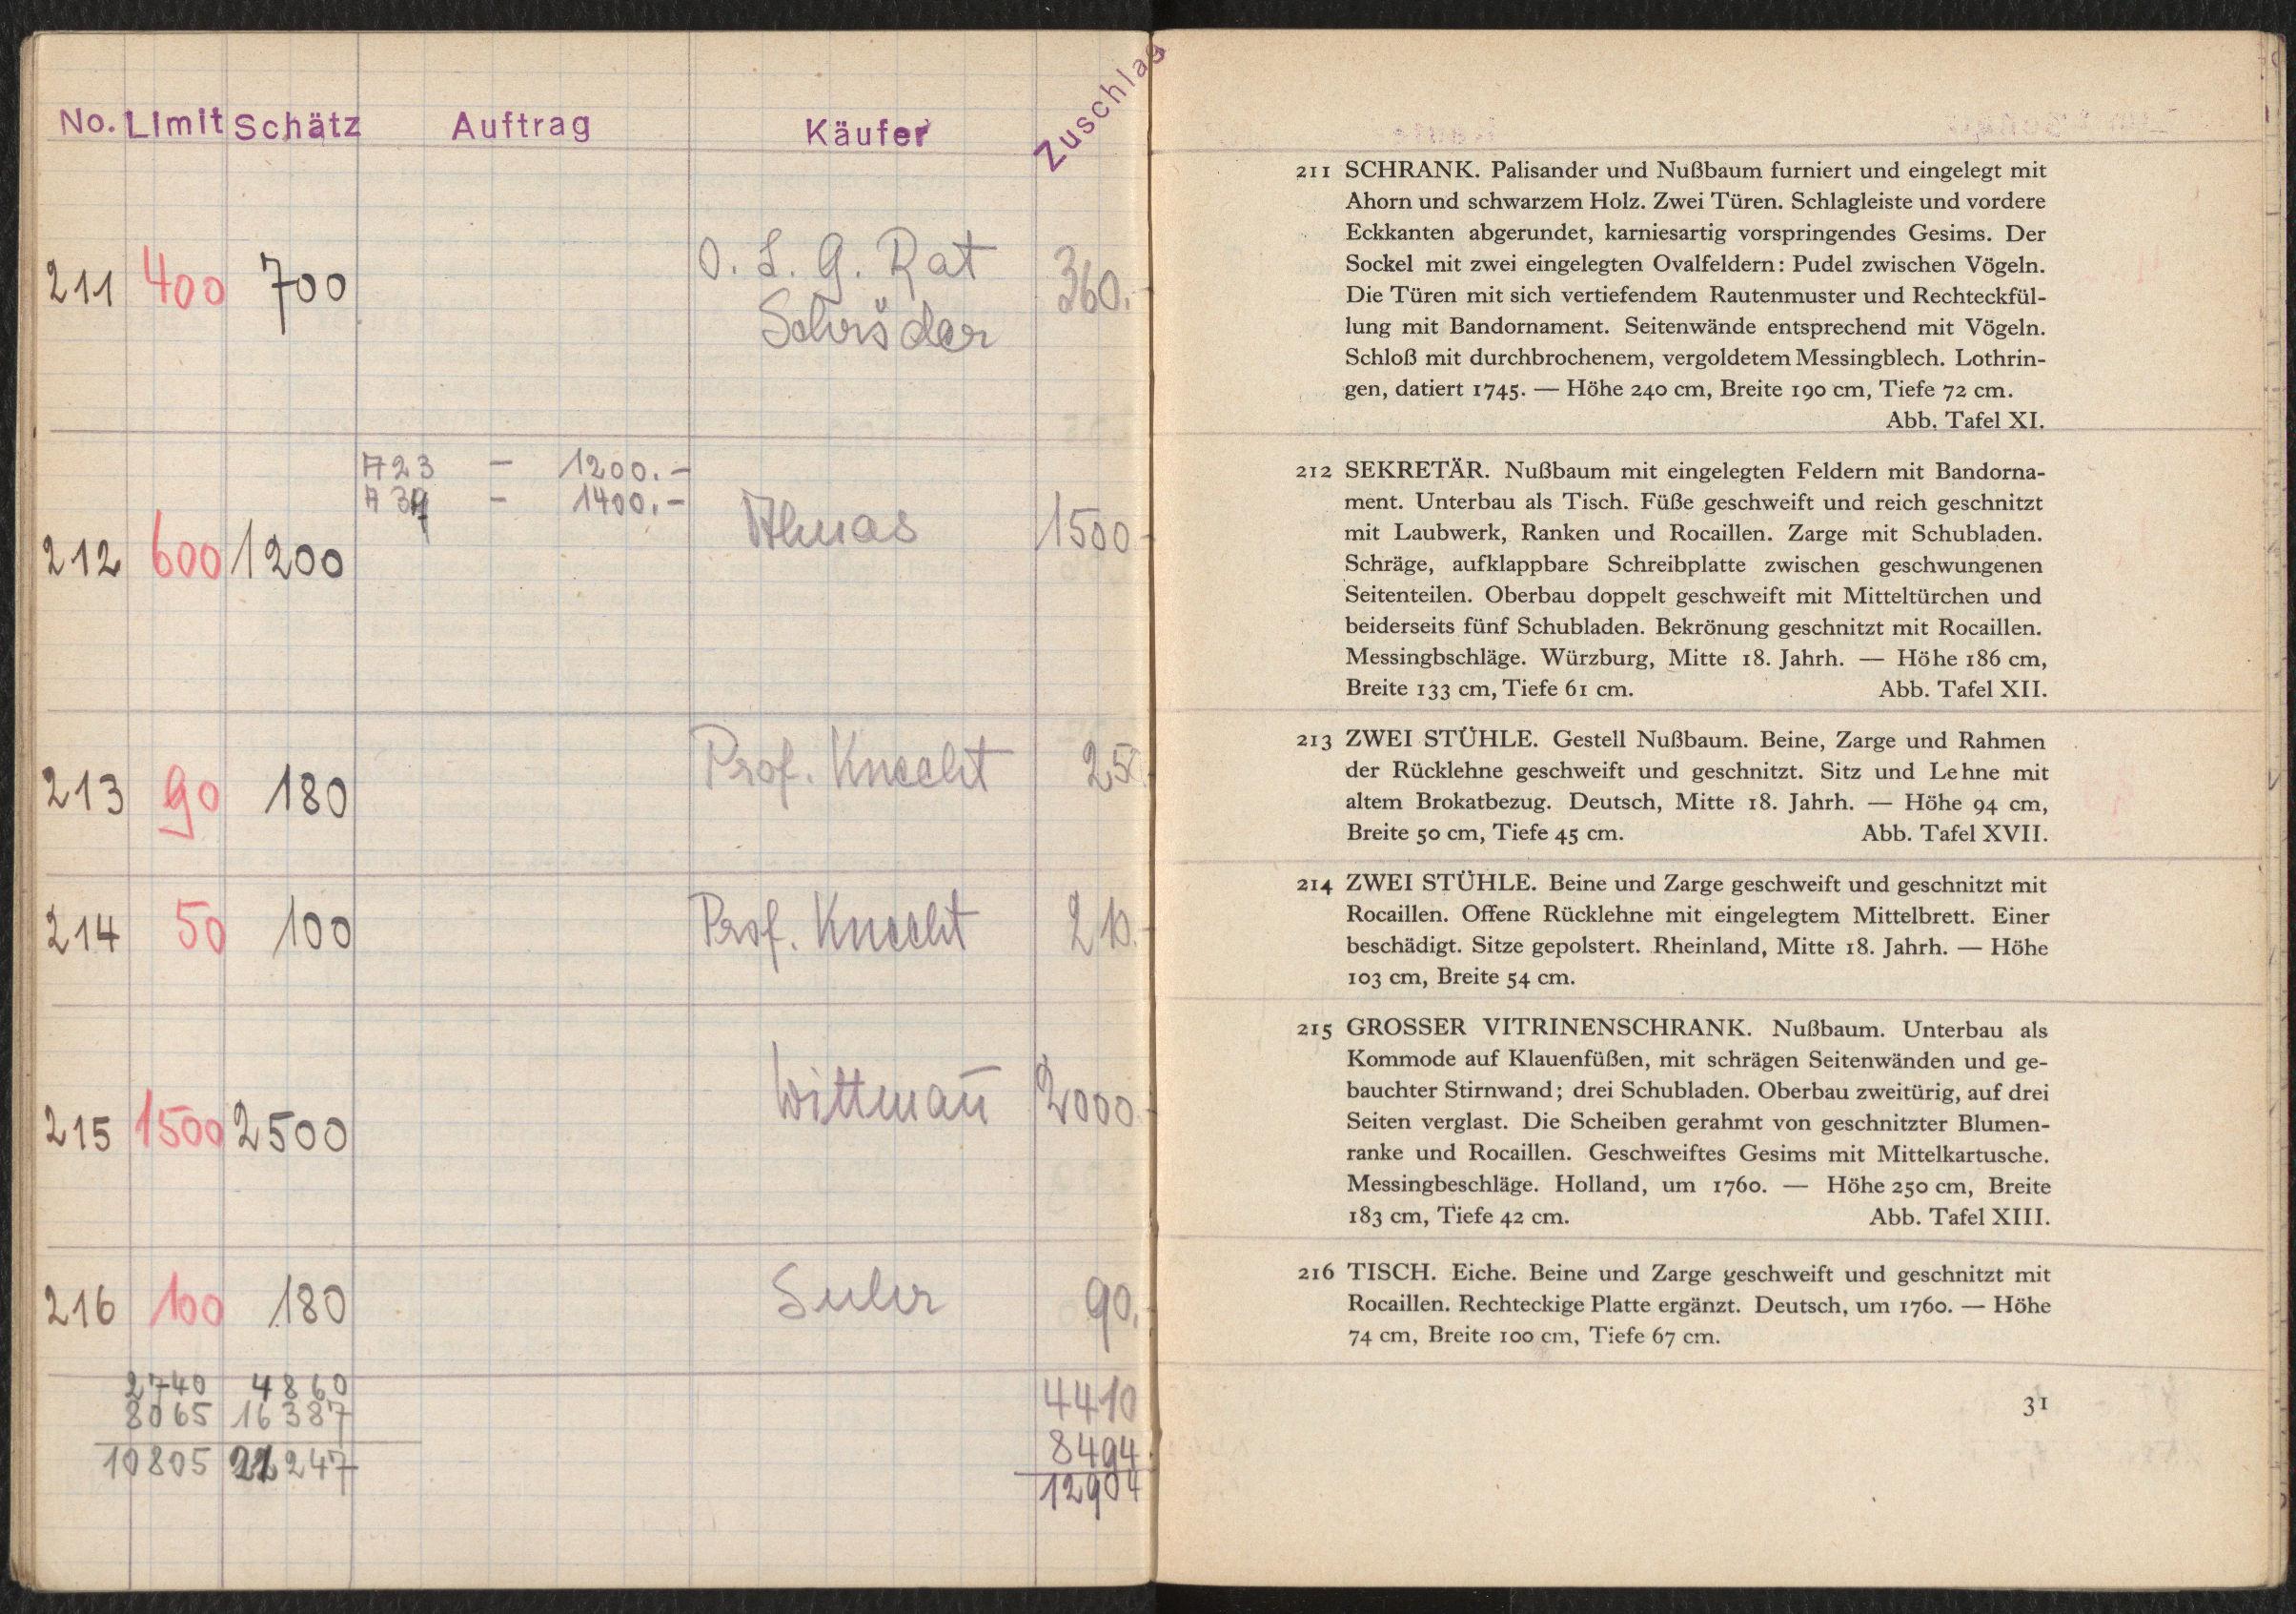 No. Limit Schätz Auftrag Käufer Zuschlag
211 400 700 O. L. G. Rat
Schröder 360.-
A 23 - 1200.-
A - 1400.-
212 600 1200 Almas 1500.-
213 90 180 Prof. Knecht 250.-
214 50 100 Prof. Knecht 210.-
215 1500 2500 Wittman̄ 2000.-
216 100 180 Suhr 90.-
2740 4860 4410
8065 16387 8494
10805 21247 12904
211 SCHRANK. Palisander und Nußbaum furniert und eingelegt mit
Ahorn und schwarzem Holz. Zwei Türen. Schlagleiste und vordere
Eckkanten abgerundet, karniesartig vorspringendes Gesims. Der
Sockel mit zwei eingelegten Ovalfeldern: Pudel zwischen Vögeln.
Die Türen mit sich vertiefendem Rautenmuster und Rechteckfül-
lung mit Bandornament. Seitenwände entsprechend mit Vögeln.
Schloß mit durchbrochenem, vergoldetem Messingblech. Lothrin-
gen, datiert 1745. — Höhe 240 cm, Breite 190 cm, Tiefe 72 cm.
Abb. Tafel XI.
212 SEKRETÄR. Nußbaum mit eingelegten Feldern mit Bandorna-
ment. Unterbau als Tisch. Füße geschweift und reich geschnitzt
mit Laubwerk, Ranken und Rocaillen. Zarge mit Schubladen.
Schräge, aufklappbare Schreibplatte zwischen geschwungenen
Seitenteilen. Oberbau doppelt geschweift mit Mitteltürchen und
beiderseits fünf Schubladen. Bekrönung geschnitzt mit Rocaillen.
Messingbschläge. Würzburg, Mitte 18. Jahrh. — Höhe 186 cm,
Breite 133 cm, Tiefe 61 cm. Abb. Tafel XII.
213 ZWEI STÜHLE. Gestell Nußbaum. Beine, Zarge und Rahmen
der Rücklehne geschweift und geschnitzt. Sitz und Lehne mit
altem Brokatbezug. Deutsch, Mitte 18. Jahrh. — Höhe 94 cm,
Breite 50 cm, Tiefe 45 cm. Abb. Tafel XVII.
214 ZWEI STÜHLE. Beine und Zarge geschweift und geschnitzt mit
Rocaillen. Offene Rücklehne mit eingelegtem Mittelbrett. Einer
beschädigt. Sitze gepolstert. Rheinland, Mitte 18. Jahrh. — Höhe
103 cm, Breite 54 cm.
215 GROSSER VITRINENSCHRANK. Nußbaum. Unterbau als
Kommode auf Klauenfüßen, mit schrägen Seitenwänden und ge-
bauchter Stirnwand; drei Schubladen. Oberbau zweitürig, auf drei
Seiten verglast. Die Scheiben gerahmt von geschnitzter Blumen-
ranke und Rocaillen. Geschweiftes Gesims mit Mittelkartusche.
Messingbeschläge. Holland, um 1760. — Höhe 250 cm, Breite
183 cm, Tiefe 42 cm. Abb. Tafel XIII.
216 TISCH. Eiche. Beine und Zarge geschweift und geschnitzt mit
Rocaillen. Rechteckige Platte ergänzt. Deutsch, um 1760. — Höhe
74 cm, Breite 100 cm, Tiefe 67 cm.
31